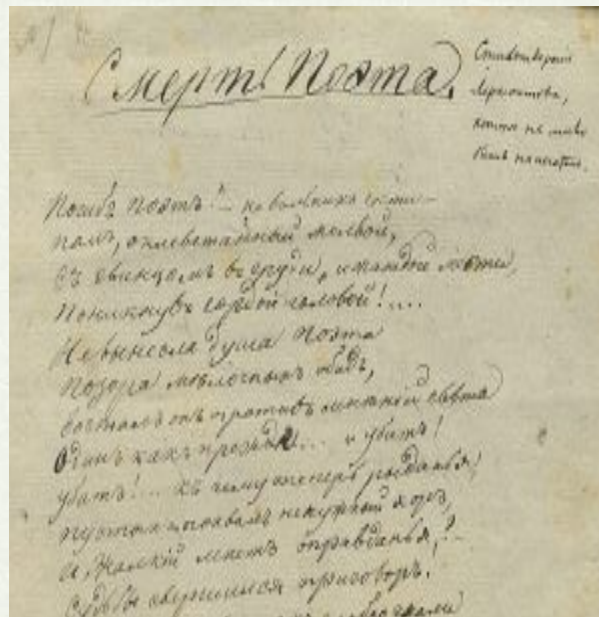 Смерть Поэта.
Лермонтова,
не
быть
Погибъ Поэтъ! — невольникъ чести —
палъ, оклеветанный молвой,
съ свинцомъ въ груди, и жаждой мести,
Поникнувъ гордой головой!....
Не вынесла душа Поэта
Позора мѣлочныхъ обидъ,
возсталъ онъ противъ мнѣній свѣта
Одинъ какъ прежде... и убитъ!
убитъ!... къ чему теперь рыданья!
пустыхъ похвалъ ненужный хоръ,
и жалкій лепетъ оправданья,?—
Судьбы свершился приговоръ.